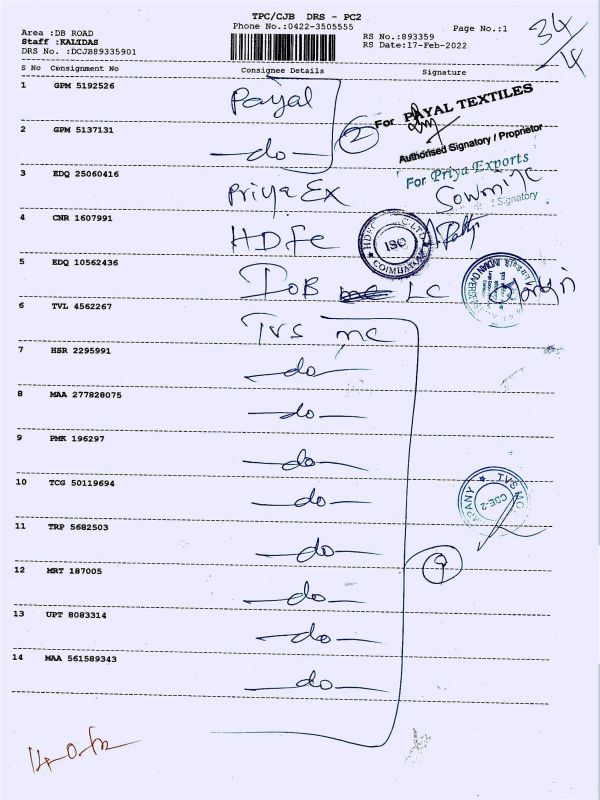 TPC/CJB DRS - PC2
Phone No.:0422-3505555
Page No.:1
34/4
Area :DB ROAD
Staff :KALIDAS
DRS No. :DCJB89335901
RS No.:893359
RS Date:17-Feb-2022
S No Consignment No Consignee Details Signature
1 GPM 5192526 Payal
For PAYAL TEXTILES
2 GPM 5137131 -do- 2
Authorised Signatory / Proprietor
3 EDQ 25060416 Priya Ex
For Priya Exports
Signatory
4 CNR 1607991 HDFC
ISO
COIMBATORE
5 EDQ 10562436 IOB LC
6 TVL 4562267 TVS mc
7 HSR 2295991 -do-
8 MAA 277828075 -do-
9 PMK 196297 -do-
10 TCG 50119694 -do-
TVS
COE-2
11 TRP 5682503 -do-
9
12 MRT 187005 -do-
13 UPT 8083314 -do-
14 MAA 561589343 -do-